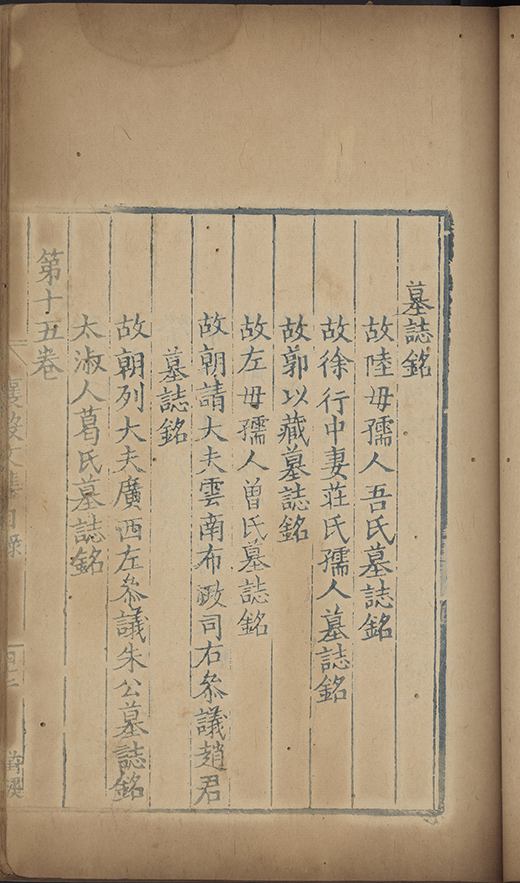 墓誌銘
故陸母孺人吾氏墓誌銘
故徐行中妻莊氏孺人墓誌銘
故郭以藏墓誌銘
故左母孺人曾氏墓誌銘
故朝請大夫雲南布政司右叅議趙君
墓誌銘
故朝列大夫廣西左叅議朱公墓誌銘
太淑人葛氏墓誌銘
第十五卷
文集目錄